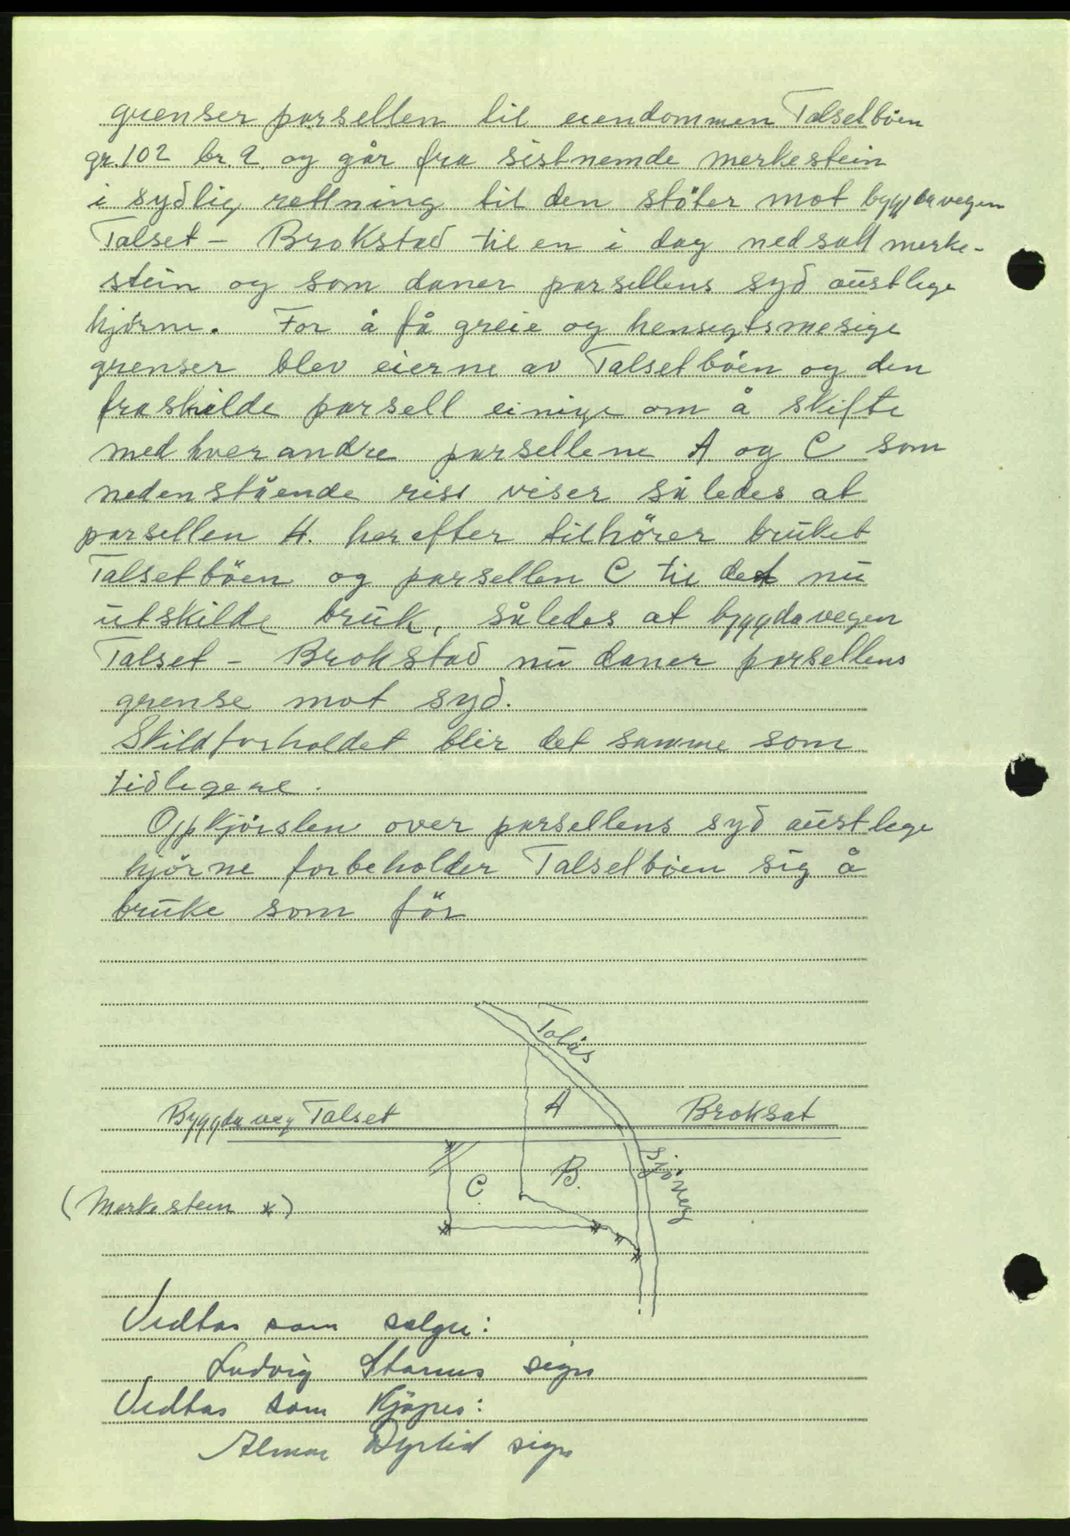 grenser parsellen til eiendommen Talsetböen
gr. 102 br. 2 og går fra sistnemde merkestein
i sydlig rettning til den støter mot byggdavegen
Talset - Brokstad til en i dag nedsatt merke-
stein og som daner parsellens syd austlege
hjørne. For å få greie og hensegtsmesige
grenser blev eierne av Talsetböen og den
fraskilde parsell einige om å skifte
med hverandre parsellene A og C som
nedenstående riss viser således at
parsellen A. herefter tilhörer bruket
Talsetböen og parsellen C til det nu
utskilde bruk, således at byggdavegen
Talset - Brokstad nu daner parsellens
grense mot syd.
Skildforholdet blir det samme som
tidligere.
Oppkjörslen over parsellens syd austlege
hjørne forbeholder Talsetböen sig å
bruke som för
Talås
A
Byggdaveg Talset Broksat
Sjöveg
B.
C.
(Merkestein *)
Vedtas som selger:
Ludvig sign
Vedtas som Kjöper:
Almar Dyrlid sign